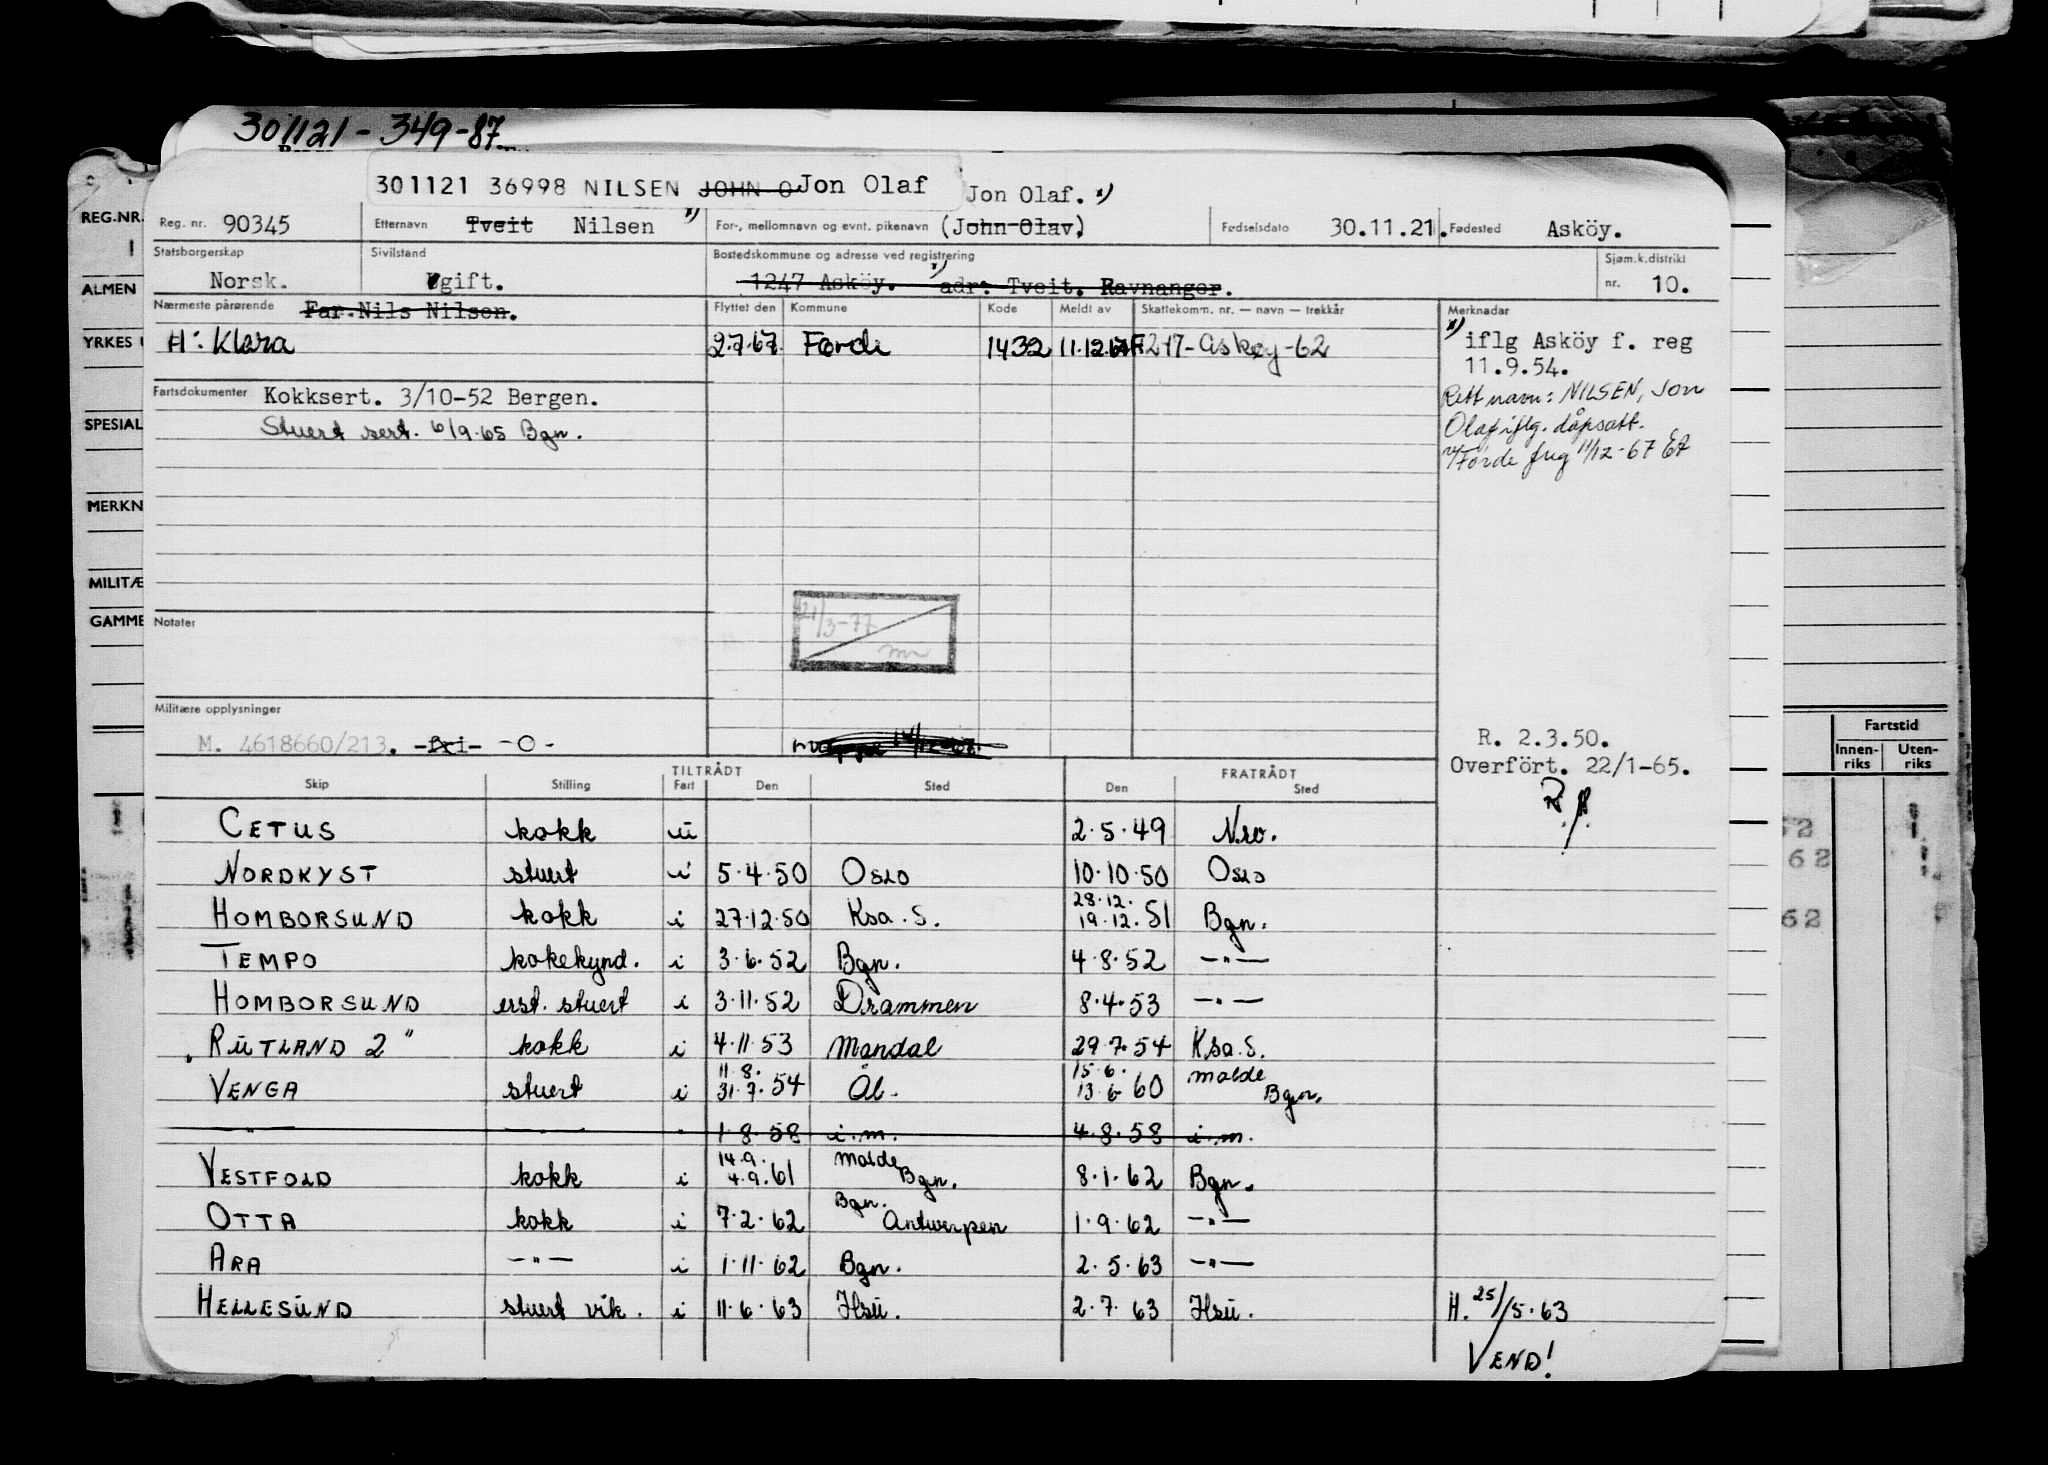 301121 - 349-87
301121 36998 NILSEN JOHN O Jon Olaf
Jon Olaf. x)
REG.NR.
Reg. nr. 90345 Etternavn Tveit Nilsen x) For-, mellomnavn og evnt. pikenavn (John Olav) Fødselsdato 30.11.21. Fødested Asköy.
Statsborgerskap Sivilstand Bostedskommune og adresse ved registrering Sjøm.k.distrikt
Norsk. gift. 1247 Asköy. x) adr: Tveit. Ravnanger. nr. 10.
ALMEN
Nærmeste pårørende Far. Nils Nilsen. Flyttet den Kommune Kode Meldt av Skattekomm. nr. — navn — trekkår Merknader
YRKES
H: Klara 2.7.67. Førde 1432 11.12.67 F. 1247- Askøy -62 x) iflg Asköy f. reg
11.9.54.
Fartsdokumenter Kokksert. 3/10-52 Bergen. Rett navn: NILSEN, Jon
SPESIAL
Stuert sert. 6/9.65 Bgn. Olaf iflg. dåpsatt.
Førde freg 11/12-67
MERKN
MILITÆ
GAMME
Notater
21/3-77
Militære opplysninger
M. 4618660/213. -fri- -O-
R. 2.3.50.
Overfört. 22/1-65.
Fartstid
Innen-riks Uten-riks
TILTRÅDT FRATRÅDT
Skip Stilling Fart Den Sted Den Sted
CETUS kokk u 2.5.49 N.w.
NORDKYST stuert i 5.4.50 Oslo 10.10.50 Oslo
28.12.
HOMBORSUND kokk i 27.12.50 Ksa. S. 19.12.51 Bgn.
TEMPO kokekynd. i 3.6.52 Bgn. 4.8.52 —"—
HOMBORSUND erst. stuert i 3.11.52 Drammen 8.4.53 —"—
"RUTLAND 2" kokk i 4.11.53 Mandal 29.7.54 Ksa. S.
11.8. 15.6. Molde
VENGA stuert i 31.7.54 Ål. 13.6.60 Bgn.
—"— —"— " 1.8.58 i.m. 4.8.58 i.m.
14.9. Molde
VESTFOLD kokk i 4.9.61 Bgn. 8.1.62 Bgn.
Bgn.
OTTA kokk i 7.2.62 Antwerpen 1.9.62 —"—
ARA —"— i 1.11.62 Bgn. 2.5.63 —"—
HELLESUND stuert vik. i 11.6.63 Hsu. 2.7.63 Hsu. H. 25/5.63
VEND!
62
62